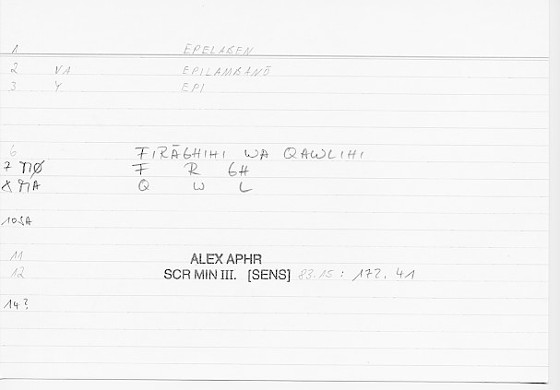 1 EPELABEN
2 VA EPILAMBANŌ
3 Y EPI
6 FIRĀGHIHI WA QAWLIHI
7 MØ F R GH
8 MA Q W L
10 SA
11 ALEX APHR
12 SCR MIN III. [SENS] 83.15 : 172.41
14?